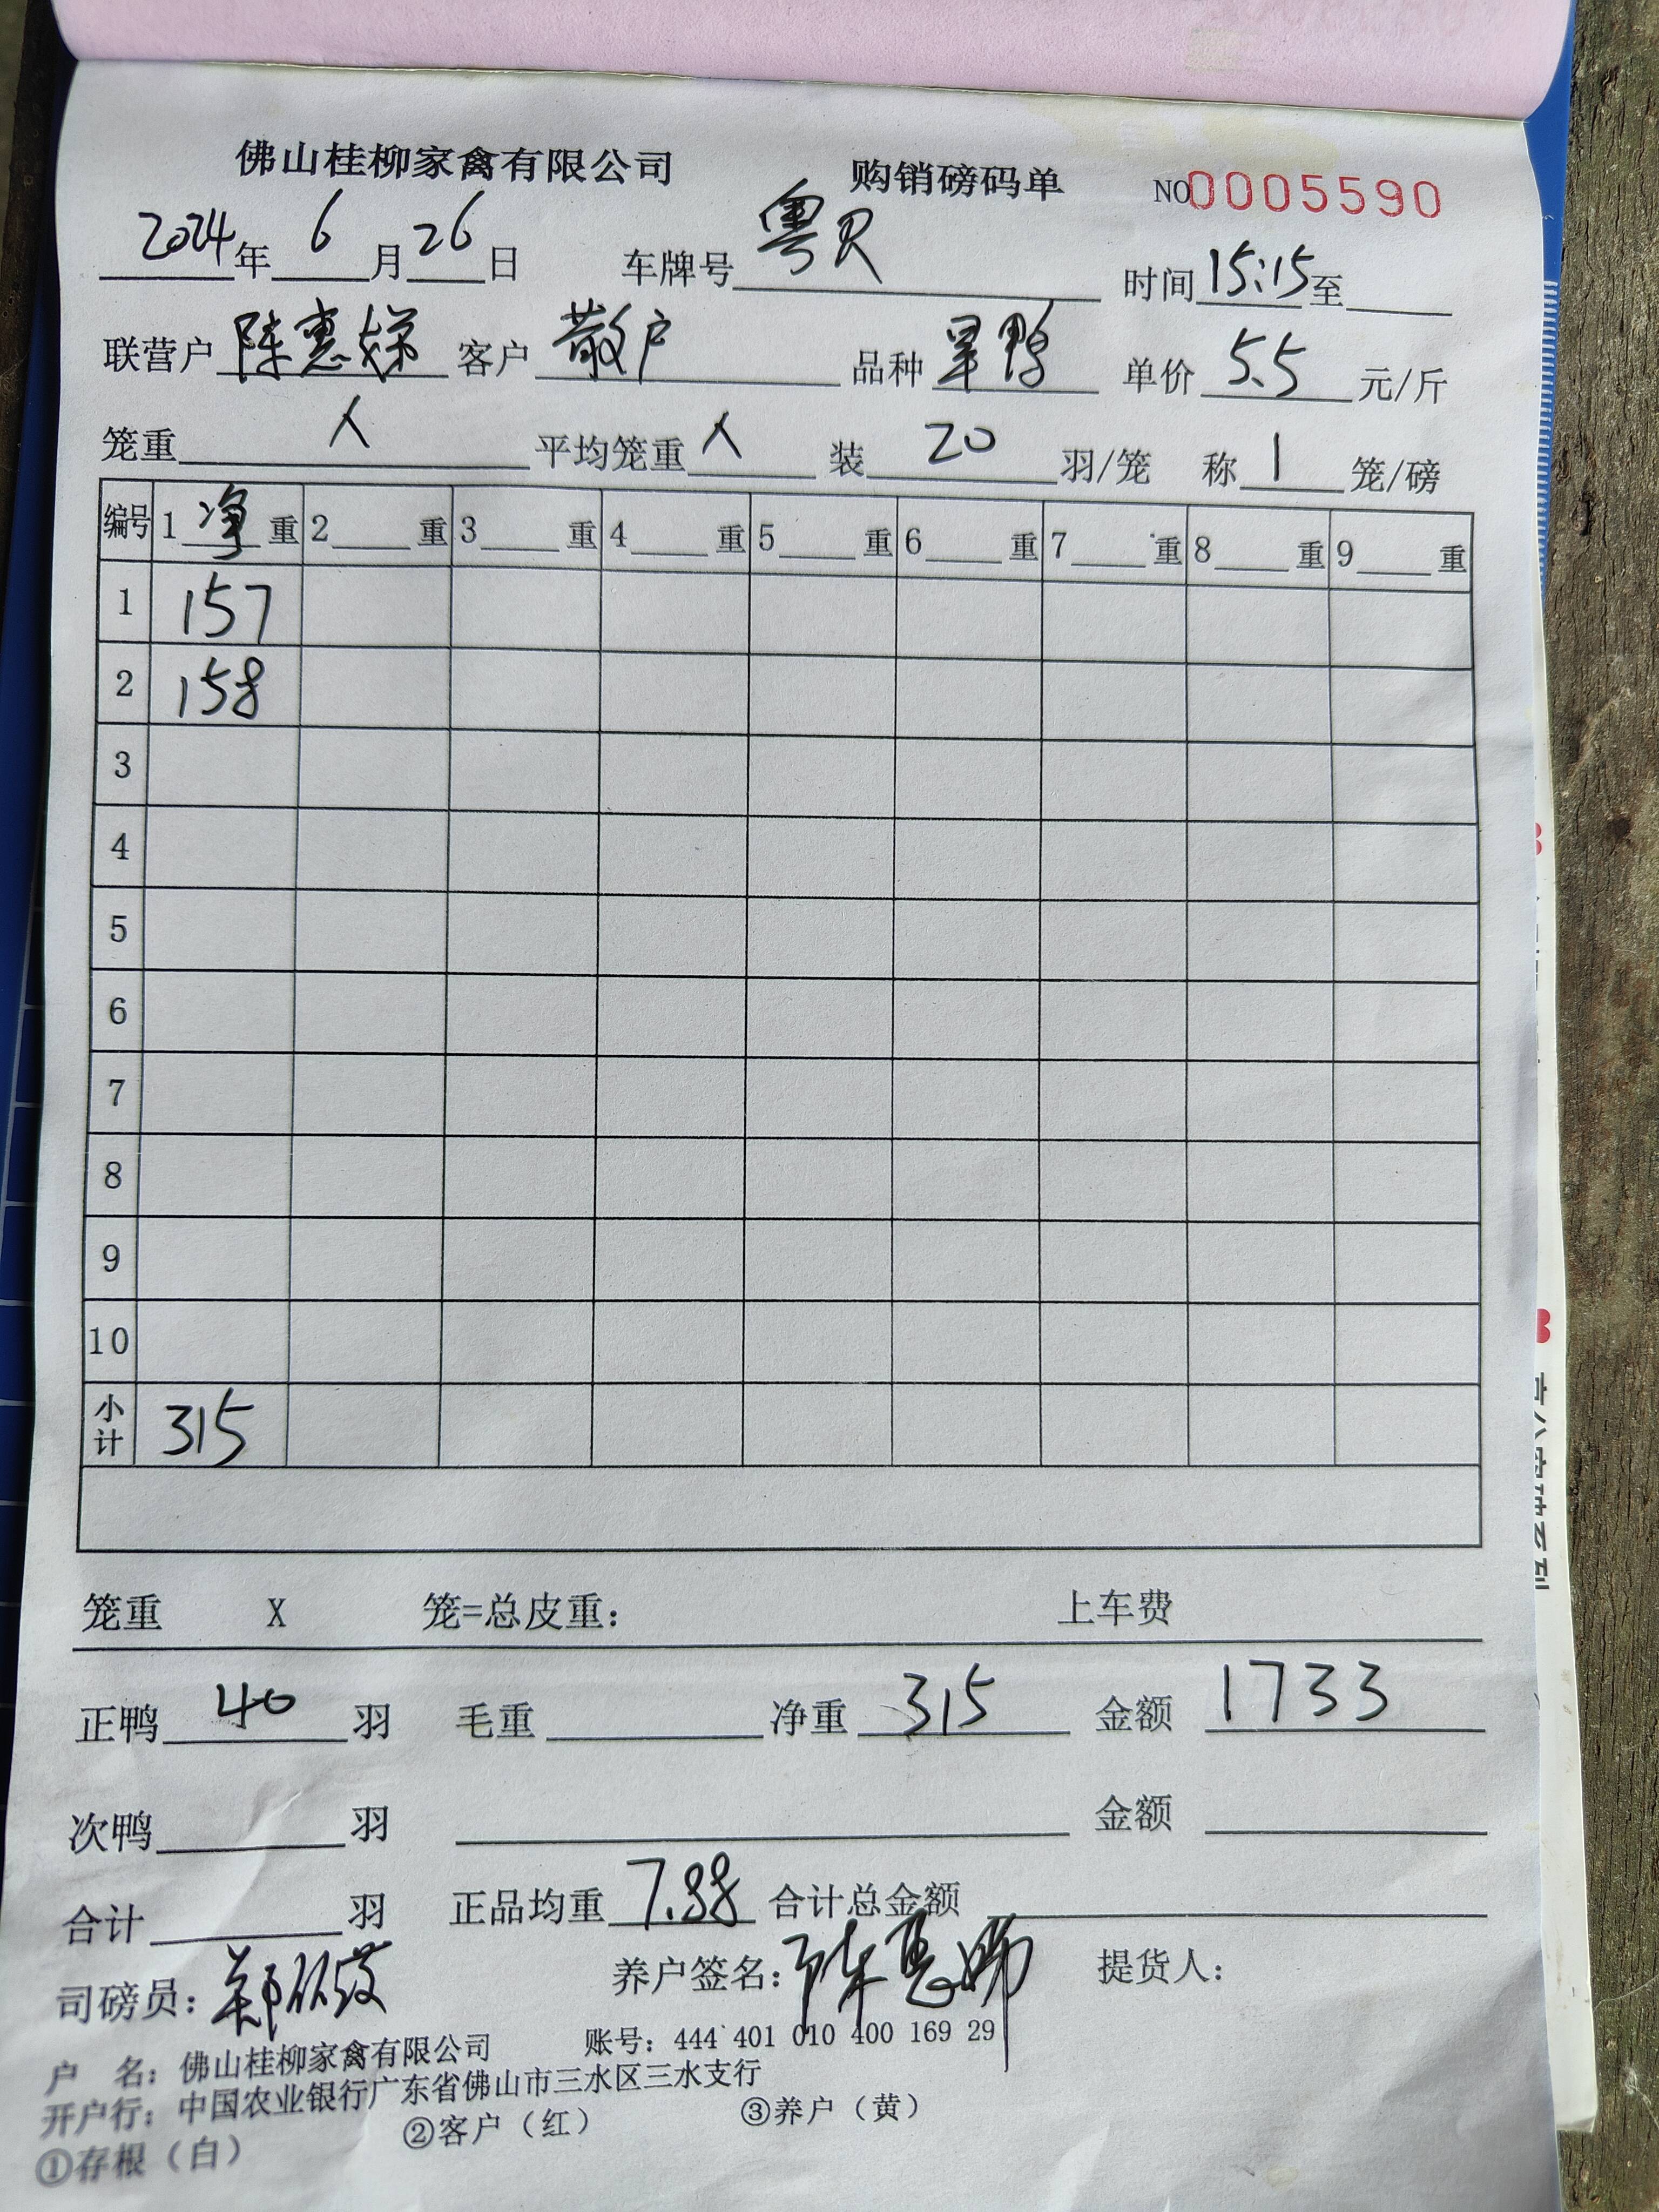 佛山桂柳家禽有限公司 购销磅码单 NO0005590
2024年6月26日 车牌号粤R 时间15:15至
联营户陈惠娣 客户散户 品种旱鸭 单价5.5元/斤
笼重 平均笼重 装20羽/笼 称1笼/磅
编号 1净重 2重 3重 4重 5重 6重 7重 8重 9重
1 157
2 158
3
4
5
6
7
8
9
10
小计 315
笼重 X 笼=总皮重: 上车费
正鸭40羽 毛重 净重315 金额1733
次鸭 羽 金额
合计 羽 正品均重7.88 合计总金额
司磅员: 养户签名: 提货人:
户 名: 佛山桂柳家禽有限公司 账号: 444 401 010 400 169 29
开户行: 中国农业银行广东省佛山市三水区三水支行
①存根(白) ②客户(红) ③养户(黄)